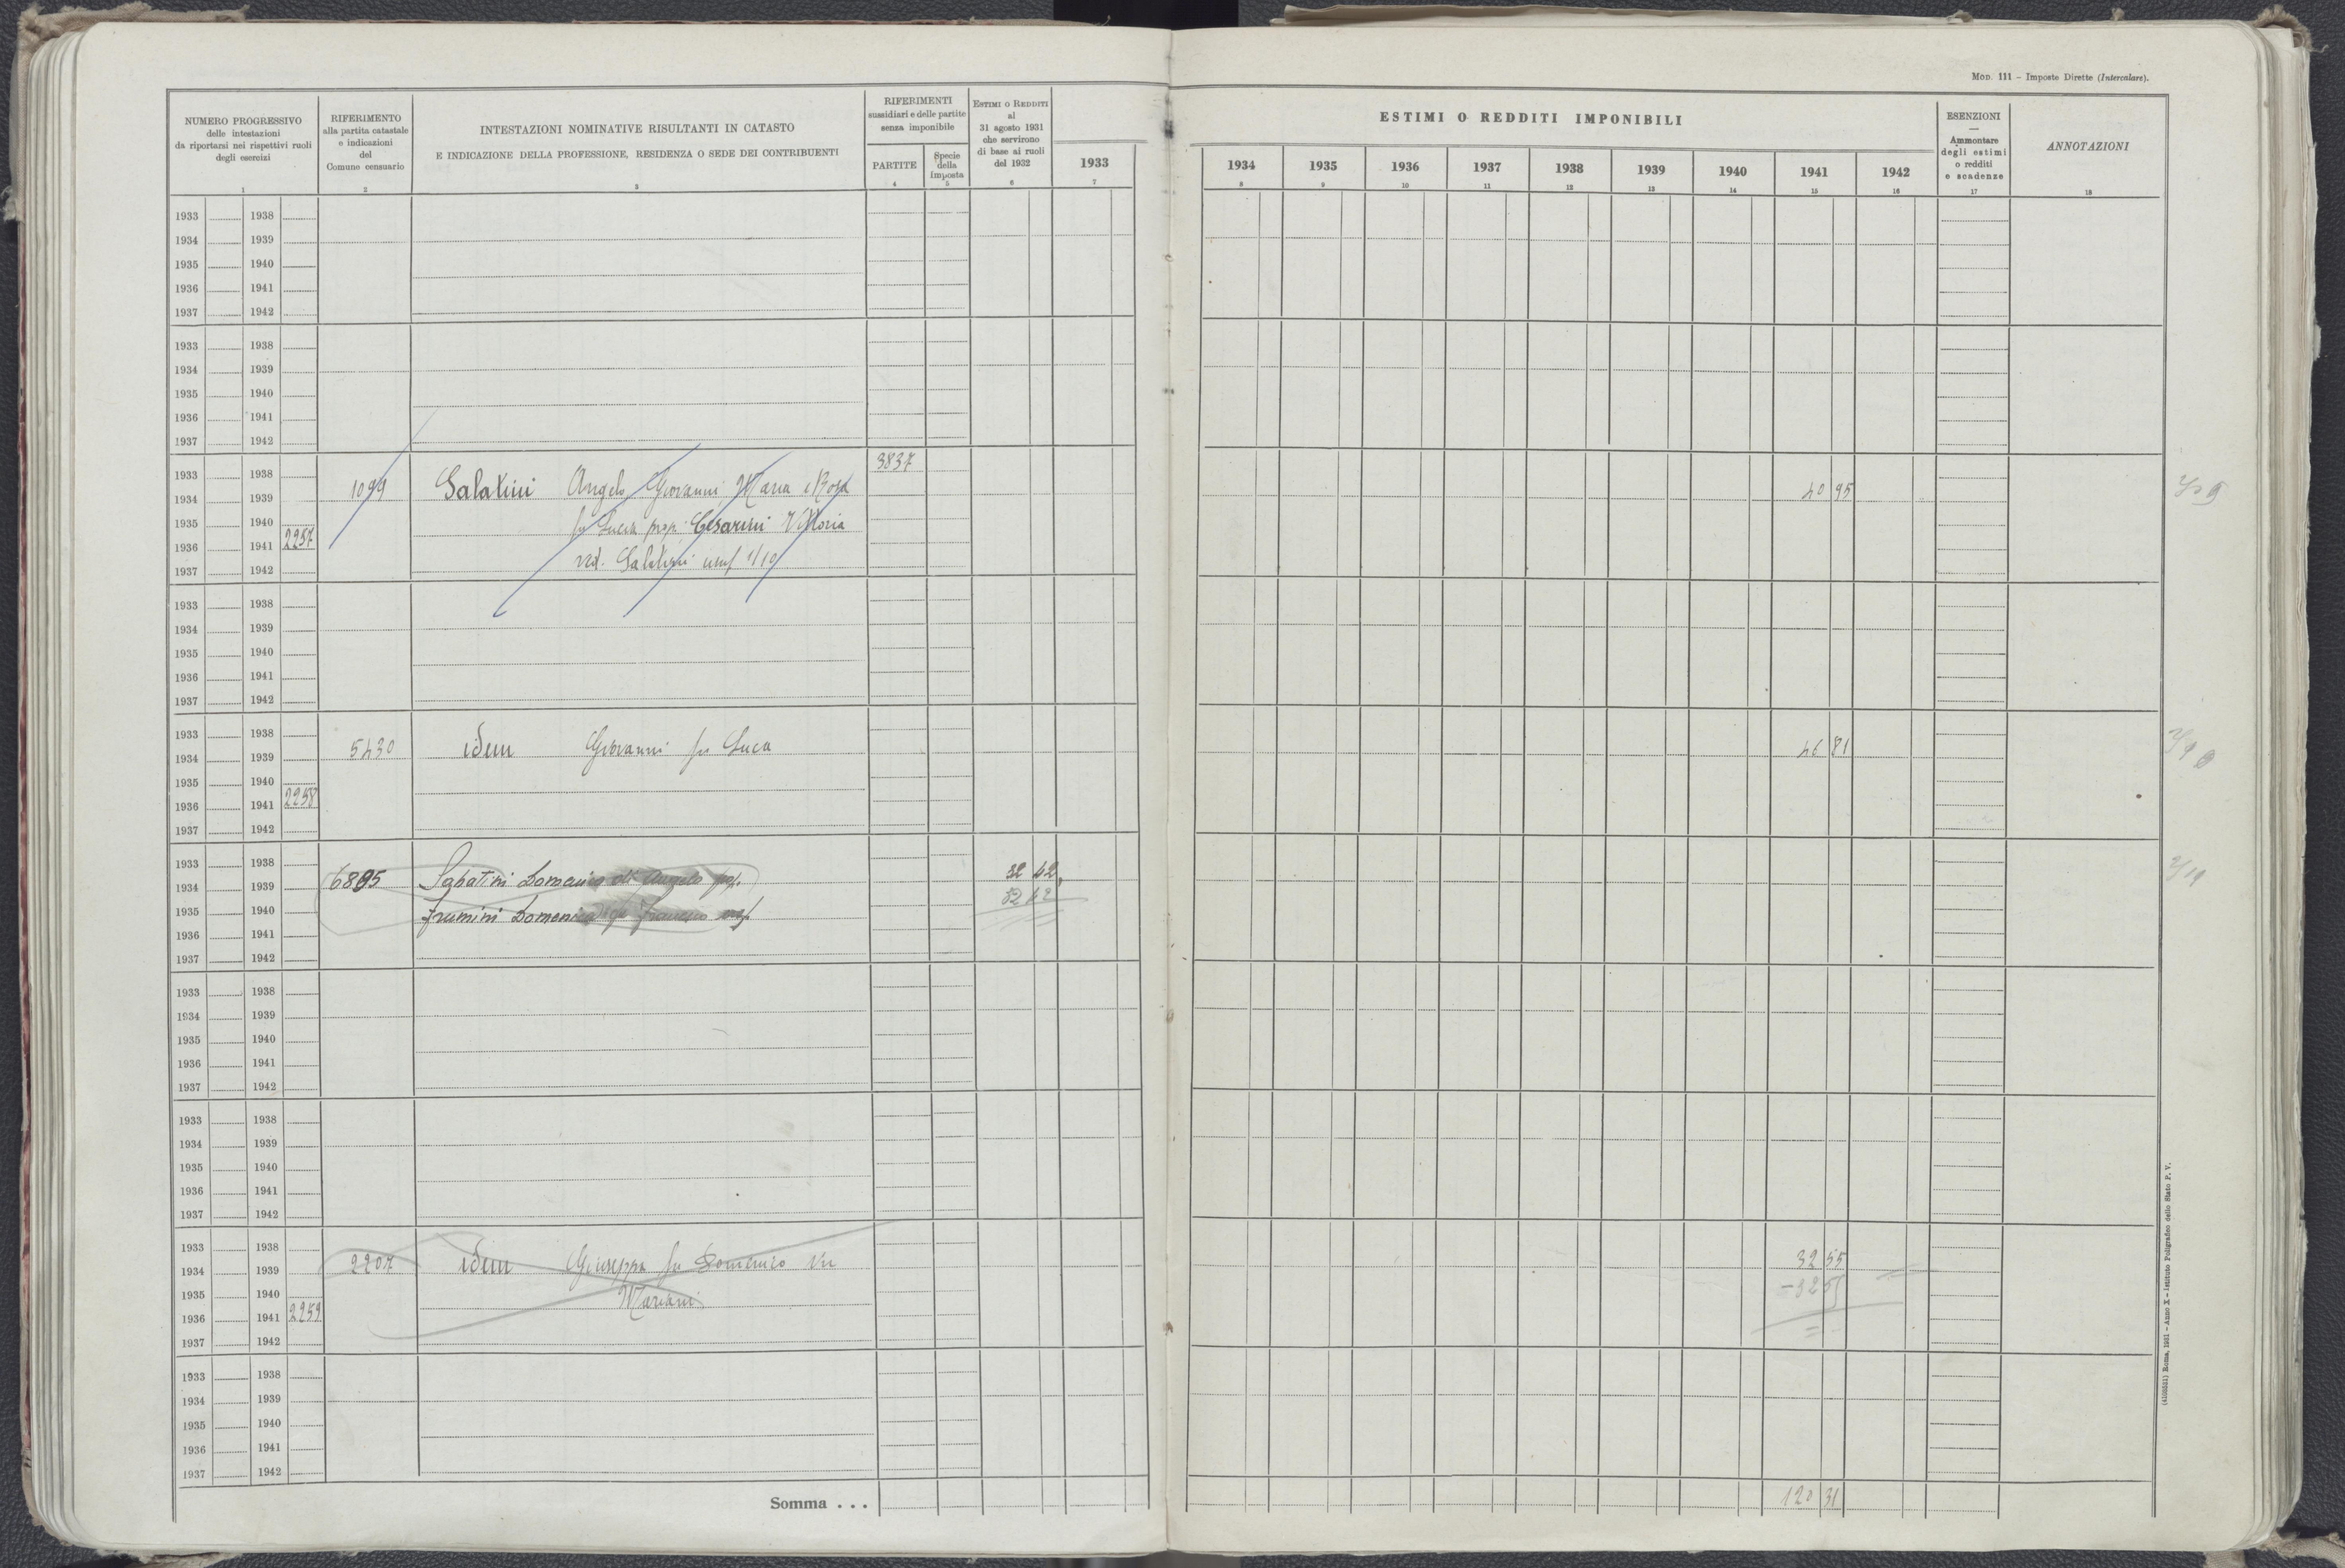 MOD. 111 – Imposte Dirette (Intercalare).
NUMERO PROGRESSIVO
delle intestazioni
da riportarsi nei rispettivi ruoli
degli esercizi
1
RIFERIMENTO
alla partita catastale
e indicazioni
del
Comune censuario
2
INTESTAZIONI NOMINATIVE RISULTANTI IN CATASTO
E INDICAZIONE DELLA PROFESSIONE, RESIDENZA O SEDE DEI CONTRIBUENTI
3
RIFERIMENTI
sussidiari e delle partite
senza imponibile
PARTITE
4
Specie
della
imposta
5
ESTIMI O REDDITI
al
31 agosto 1931
che servirono
di base ai ruoli
del 1932
6
ESTIMI O REDDITI IMPONIBILI
1933 1934 1935 1936 1937 1938 1939 1940 1941 1942
7 8 9 10 11 12 13 14 15 16
ESENZIONI
—
Ammontare
degli estimi
o redditi
e scadenze
17
ANNOTAZIONI
18
1933 1938
1934 1939
1935 1940
1936 1941
1937 1942
1933 1938
1934 1939
1935 1940
1936 1941
1937 1942
1933 1938 3837
1934 1939 1099 Salatini Angelo Giovanni Maria e Rosa 40 95
1935 1940 fu Luca prop. Cesarini Vittoria
1936 1941 2257 ved. Salatini usuf 1/10
1937 1942
1933 1938
1934 1939
1935 1940
1936 1941
1937 1942
1933 1938
1934 1939 5430 idem Giovanni fu Luca 46 81
1935 1940
1936 1941 2258
1937 1942
1933 1938
1934 1939 6895 Sabatini Domenico di Angelo prop. 32 42
1935 1940 Frumini Domenica Francesco usuf. 32 42
1936 1941
1937 1942
1933 1938
1934 1939
1935 1940
1936 1941
1937 1942
1933 1938
1934 1939
1935 1940
1936 1941
1937 1942
1933 1938
1934 1939 2207 idem Giuseppa fu Domenico in 32 55
1935 1940 Mariani – 32 55
1936 1941 2259 =
1937 1942
1933 1938
1934 1939
1935 1940
1936 1941
1937 1942
Somma . . . 120 31
(4108531) Roma, 1931 – Anno X – Istituto Poligrafico dello Stato P. V.